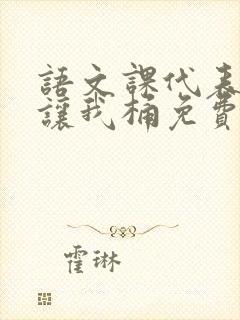 語文課代表
讓我桶免費
霍琳